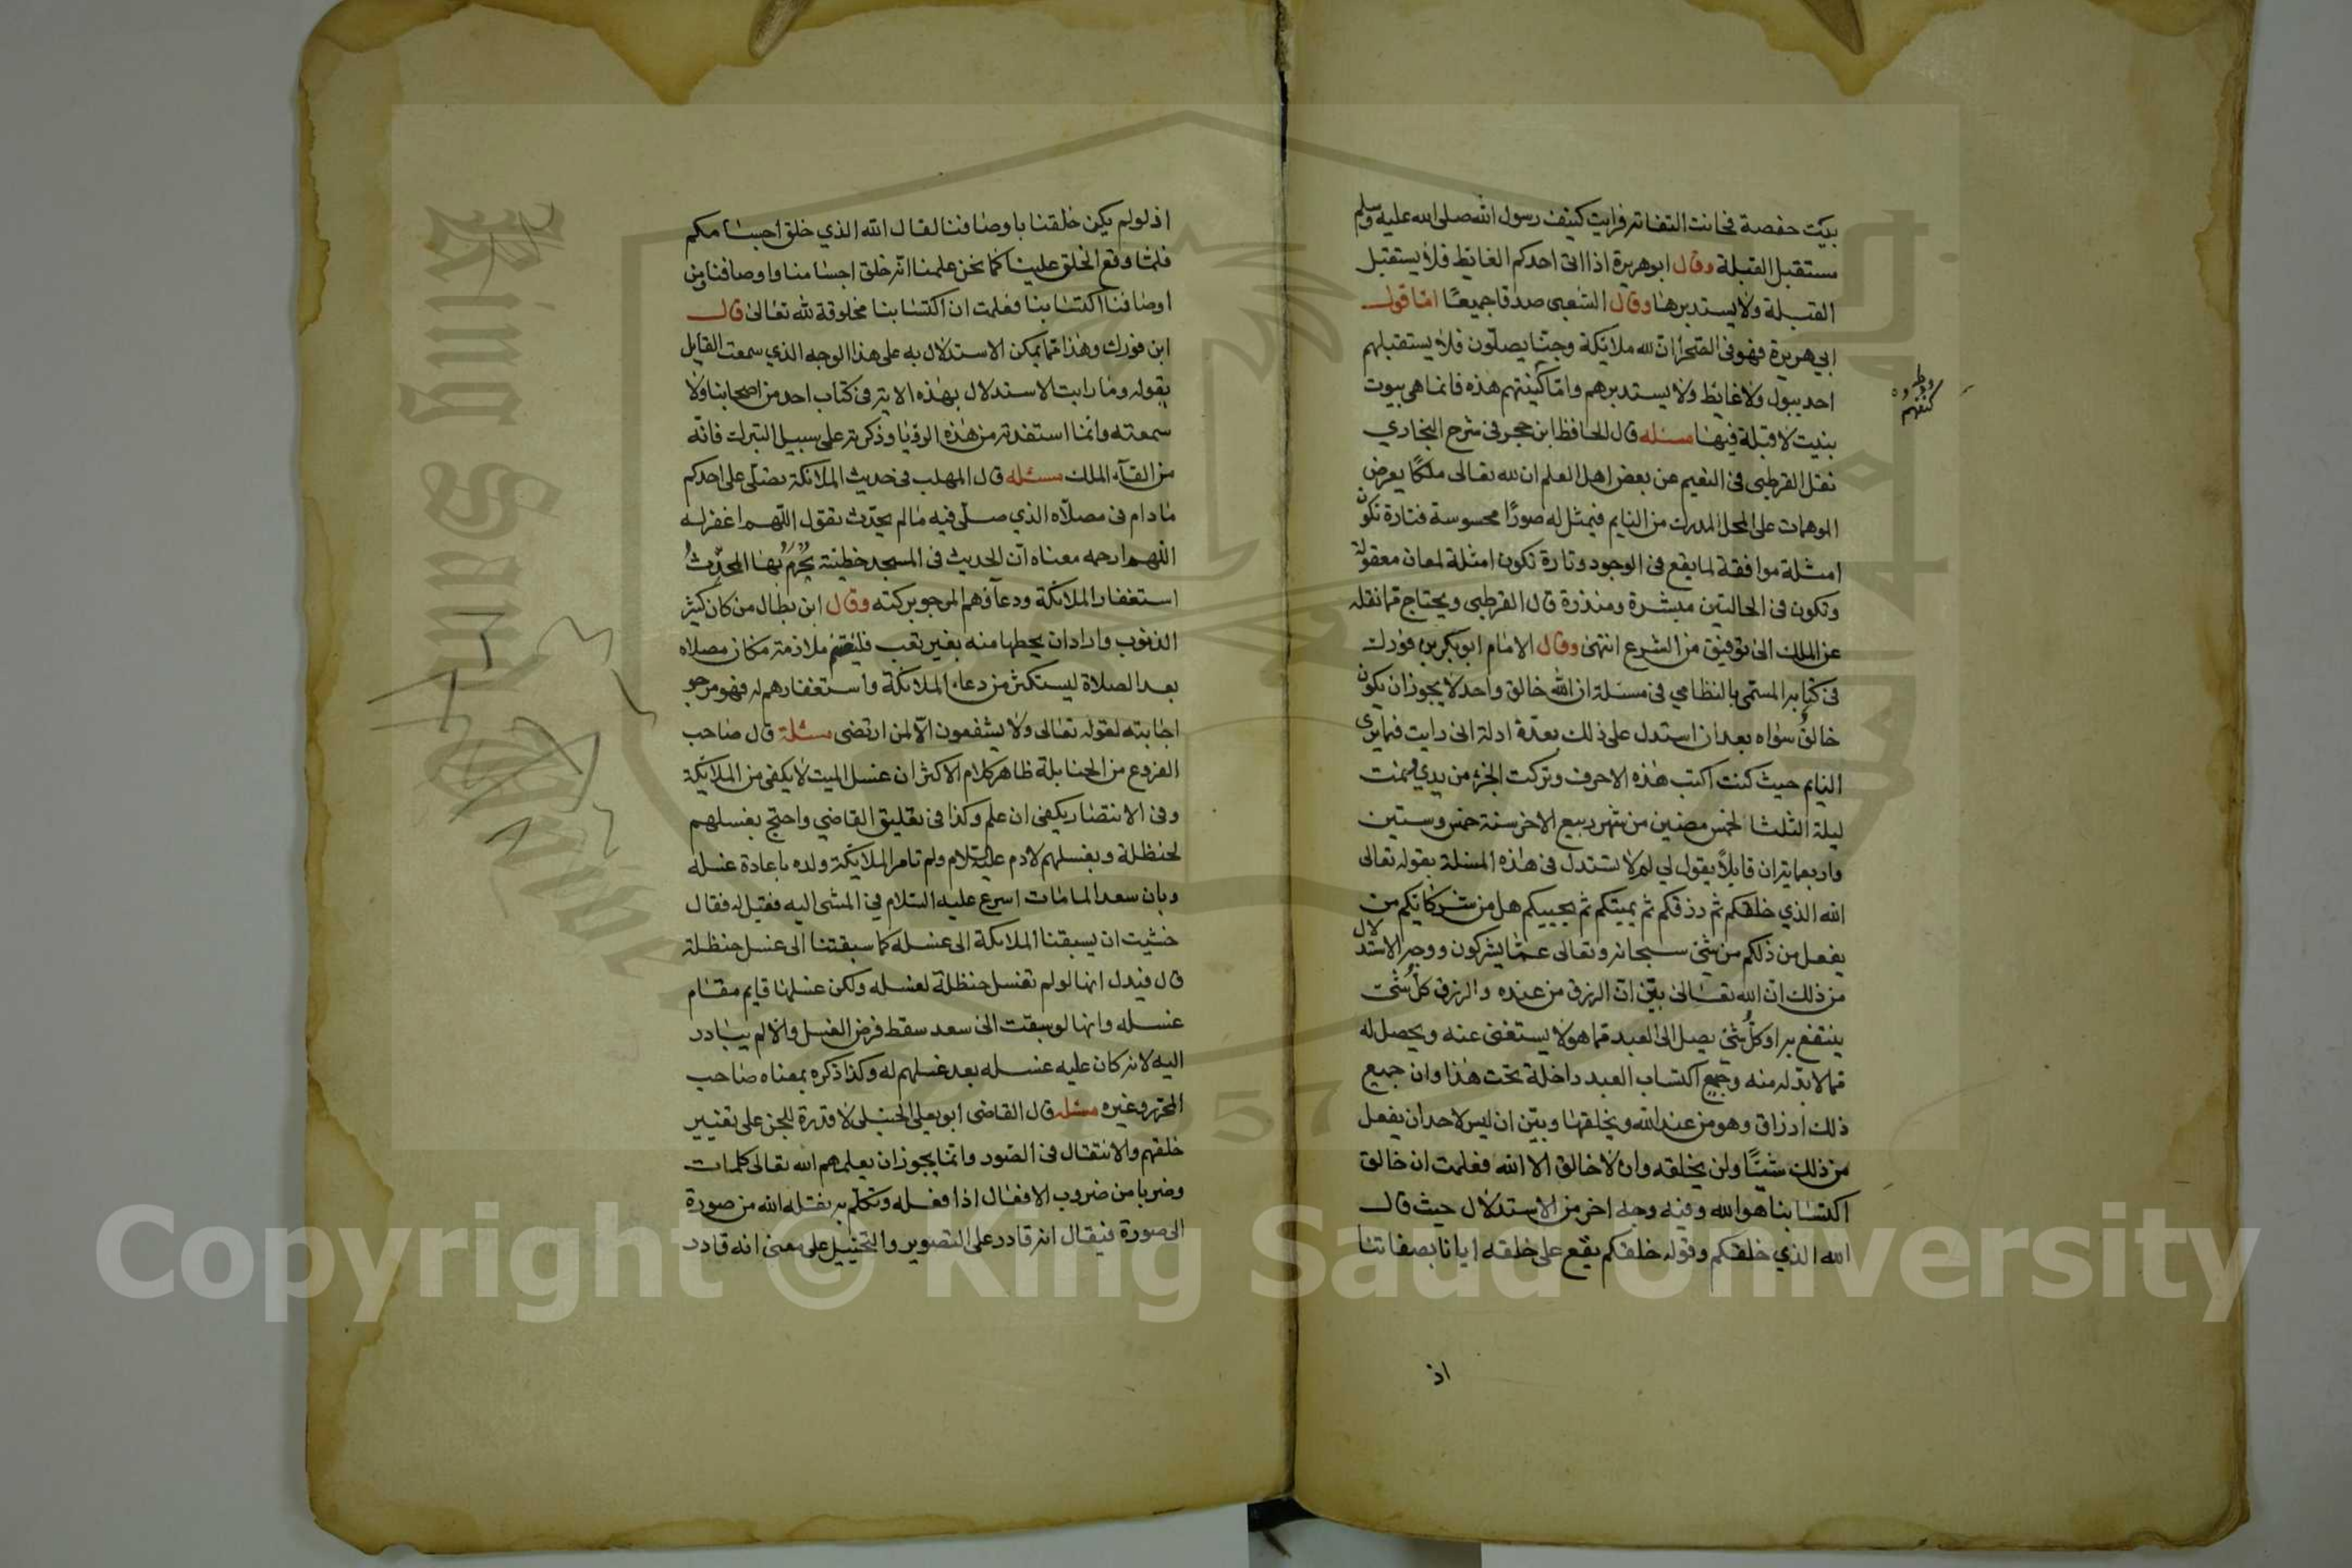 بيت حفصة فحانت التفاتة فرايت كنيف رسول الله صلى الله عليه وسلم
مستقبل القبلة وقال ابو هريرة اذا اتى احدكم الغايط فلا يستقبل
القبلة ولا يستدبرها وقال الشعبي صدقا جميعا اما قول
ابي هريرة فهو في الصحرا ان لله ملائكة وجنا يصلون فلا يستقبلهم
احد ببول ولا غائط ولا يستدبرهم واما كنيفهم هذه فانما هي بيوت
بنيت لا قبلة فيها مسئله قال الحافظ ابن حجر في شرح البخاري
نقل القرطبي في المفهم عن بعض اهل العلم ان لله تعالى ملكا يعرض
المرئيات على المحل المدرك من النايم فيمثل له صورا محسوسة فتارة تكون
امثلة موافقة لما يقع في الوجود وتارة تكون امثلة لمعان معقولة
وتكون في الحالتين مبشرة ومنذرة قال القرطبي ويحتاج فيما نقله
عن الملك الى توقيف من الشرع انتهى وقال الامام ابو بكر بن فورك
في كتابه المسمى بالنظامي في مسئلة ان الله خالق واحد لا يجوز ان يكون
خالق سواه بعد ان استدل على ذلك بعدة ادلة اني رايت فيما يرى
النايم حيث كنت اكتب هذه الاحرف وتركت الجزء من يدي فنمت
ليلة الثلثا لخمس مضين من شهر ربيع الاخر سنة خمس وستين
واربعماية ان قايلا يقول لي لم لا تستدل في هذه المسئلة بقوله تعالى
الله الذي خلقكم ثم رزقكم ثم يميتكم ثم يحييكم هل من شركائكم من
يفعل من ذلكم من شئ سبحانه وتعالى عما يشركون ووجه الاستدلال
من ذلك ان الله تعالى بين ان الرزق من عنده والرزق كل شئ
ينتفع به او كل شئ يصل الى العبد مما هو لا يستغني عنه ويحصل له
مما لا بد له منه وجميع اكتساب العبد داخلة تحت هذا وان جميع
ذلك ارزاق وهو من عند الله ويخلقها وبين ان ليس لاحد ان يفعل
من ذلك شيئا ولن يخلقه وان لا خالق الا الله فعلمت ان خالق
اكتسابنا هو الله وفيه وجه اخر من الاستدلال حيث قال
الله الذي خلقكم وقوله خلقكم يقع على خلقه ايانا بصفاتنا
اذ
كنفهم
اذ لو لم يكن خلقنا باوصافنا لقال الله الذي خلق اجسامكم
فلما وقع الخلق علينا كما نحن علمنا انه خلق اجسامنا واوصافنا ومن
اوصافنا اكتسابنا فعلمت ان اكتسابنا مخلوقة لله تعالى قال
ابن فورك وهذا مما يمكن الاستدلال به على هذا الوجه الذي سمعت القايل
يقوله وما رايت الاستدلال بهذه الاية في كتاب احد من اصحابنا ولا
سمعته وانما استفدته من هذه الرؤيا وذكرته على سبيل التبرك فانه
من القاء الملك مسئله قال المهلب في حديث الملائكة تصلي على احدكم
ما دام في مصلاه الذي صلى فيه ما لم يحدث تقول اللهم اغفر له
اللهم ارحمه معناه ان الحديث في المسجد خطيئة يحرم بها المحدث
استغفار الملائكة ودعاؤهم المرجو بركته وقال ابن بطال من كان كثير
الذنوب واراد ان يحطها منه بغير تعب فليغتنم ملازمة مكان مصلاه
بعد الصلاة ليستكثر من دعاء الملائكة واستغفارهم له فهو مرجو
اجابته لقوله تعالى ولا يشفعون الا لمن ارتضى مسئلة قال صاحب
الفروع من الحنابلة ظاهر كلام الاكثر ان غسل الميت لا يكفي من الملائكة
وفي الانتصار يكفي ان علم وكذا في تعليق القاضي واحتج بغسلهم
لحنظلة وبغسلهم لادم عليه السلام ولم تامر الملائكة ولده باعادة غسله
وبان سعدا لما مات اسرع عليه السلام في المشى اليه فقيل له فقال
خشيت ان يسبقنا الملائكة الى غسله كما سبقتنا الى غسل حنظلة
قال فيدل انها لو لم تغسل حنظلة لغسله ولكن غسلها قايم مقام
غسله وانها لو سبقت الى سعد سقط فرض الغسل والا لم يبادر
اليه لانه كان عليه غسله بعد غسلهم له وكذا ذكره بمعناه صاحب
المحرر وغيره مسئله قال القاضي ابو يعلى الحنبلي لا قدرة للجن على تغيير
خلقهم والانتقال في الصور وانما يجوز ان يعلمهم الله تعالى كلمات
وضربا من ضروب الافعال اذا فعله وتكلم به نقله الله من صورة
الى صورة فيقال انه قادر على التصوير والتخييل على معنى انه قادر
Copyright © King Saud University
King Saud University
1957